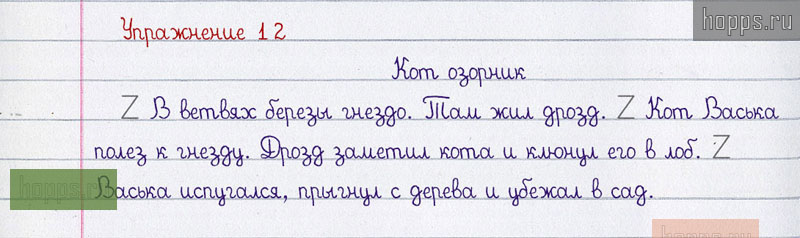 hopps.ru
Упражнение 12
Кот озорник
Z В ветвях березы гнездо. Там жил дрозд. Z Кот Васька
полез к гнезду. Дрозд заметил кота и клюнул его в лоб. Z
hopps.ru
Васька испугался, прыгнул с дерева и убежал в сад.
hopps.ru